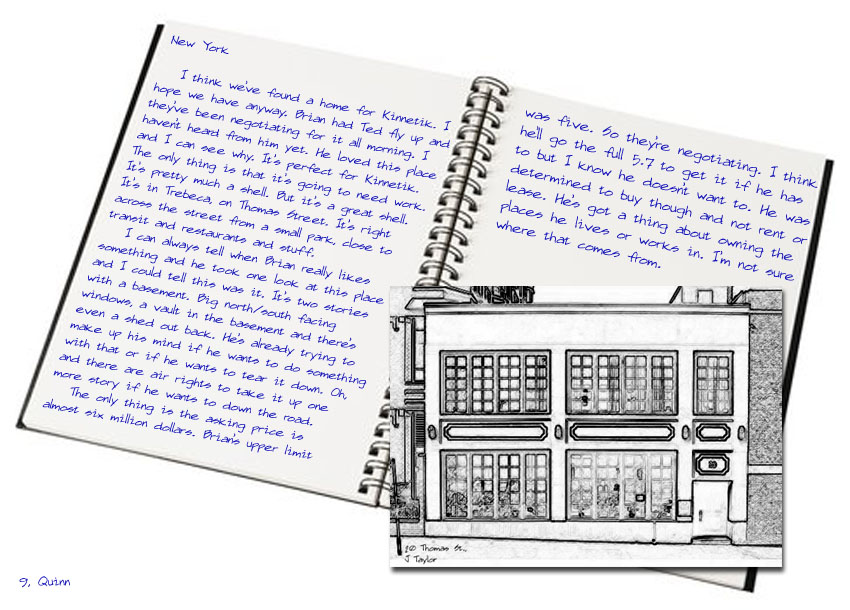 New York
I think we've found a home for Kinnetik. I
hope we have anyway. Brian had Ted fly up and
they've been negotiating for it all morning. I
haven't heard from him yet. He loved this place
and I can see why. It's perfect for Kinnetik.
The only thing is that it's going to need work.
It's pretty much a shell. But it's a great shell.
It's in Trebeca, on Thomas Street. It's right
across the street from a small park, close to
transit and restaurants and stuff.
I can always tell when Brian really likes
something and he took one look at this place
and I could tell this was it. It's two stories
with a basement. Big north/south facing
windows, a vault in the basement and there's
even a shed out back. He's already trying to
make up his mind if he wants to do something
with that or if he wants to tear it down. Oh,
and there are air rights to take it up one
more story if he wants to down the road.
The only thing is the asking price is
almost six million dollars. Brian's upper limit
was five. So they're negotiating. I think
he'll go the full 5.7 to get it if he has
to but I know he doesn't want to. He was
determined to buy though and not rent or
lease. He's got a thing about owning the
places he lives or works in. I'm not sure
where that comes from.
Thomas St.
J Taylor
9, Quinn